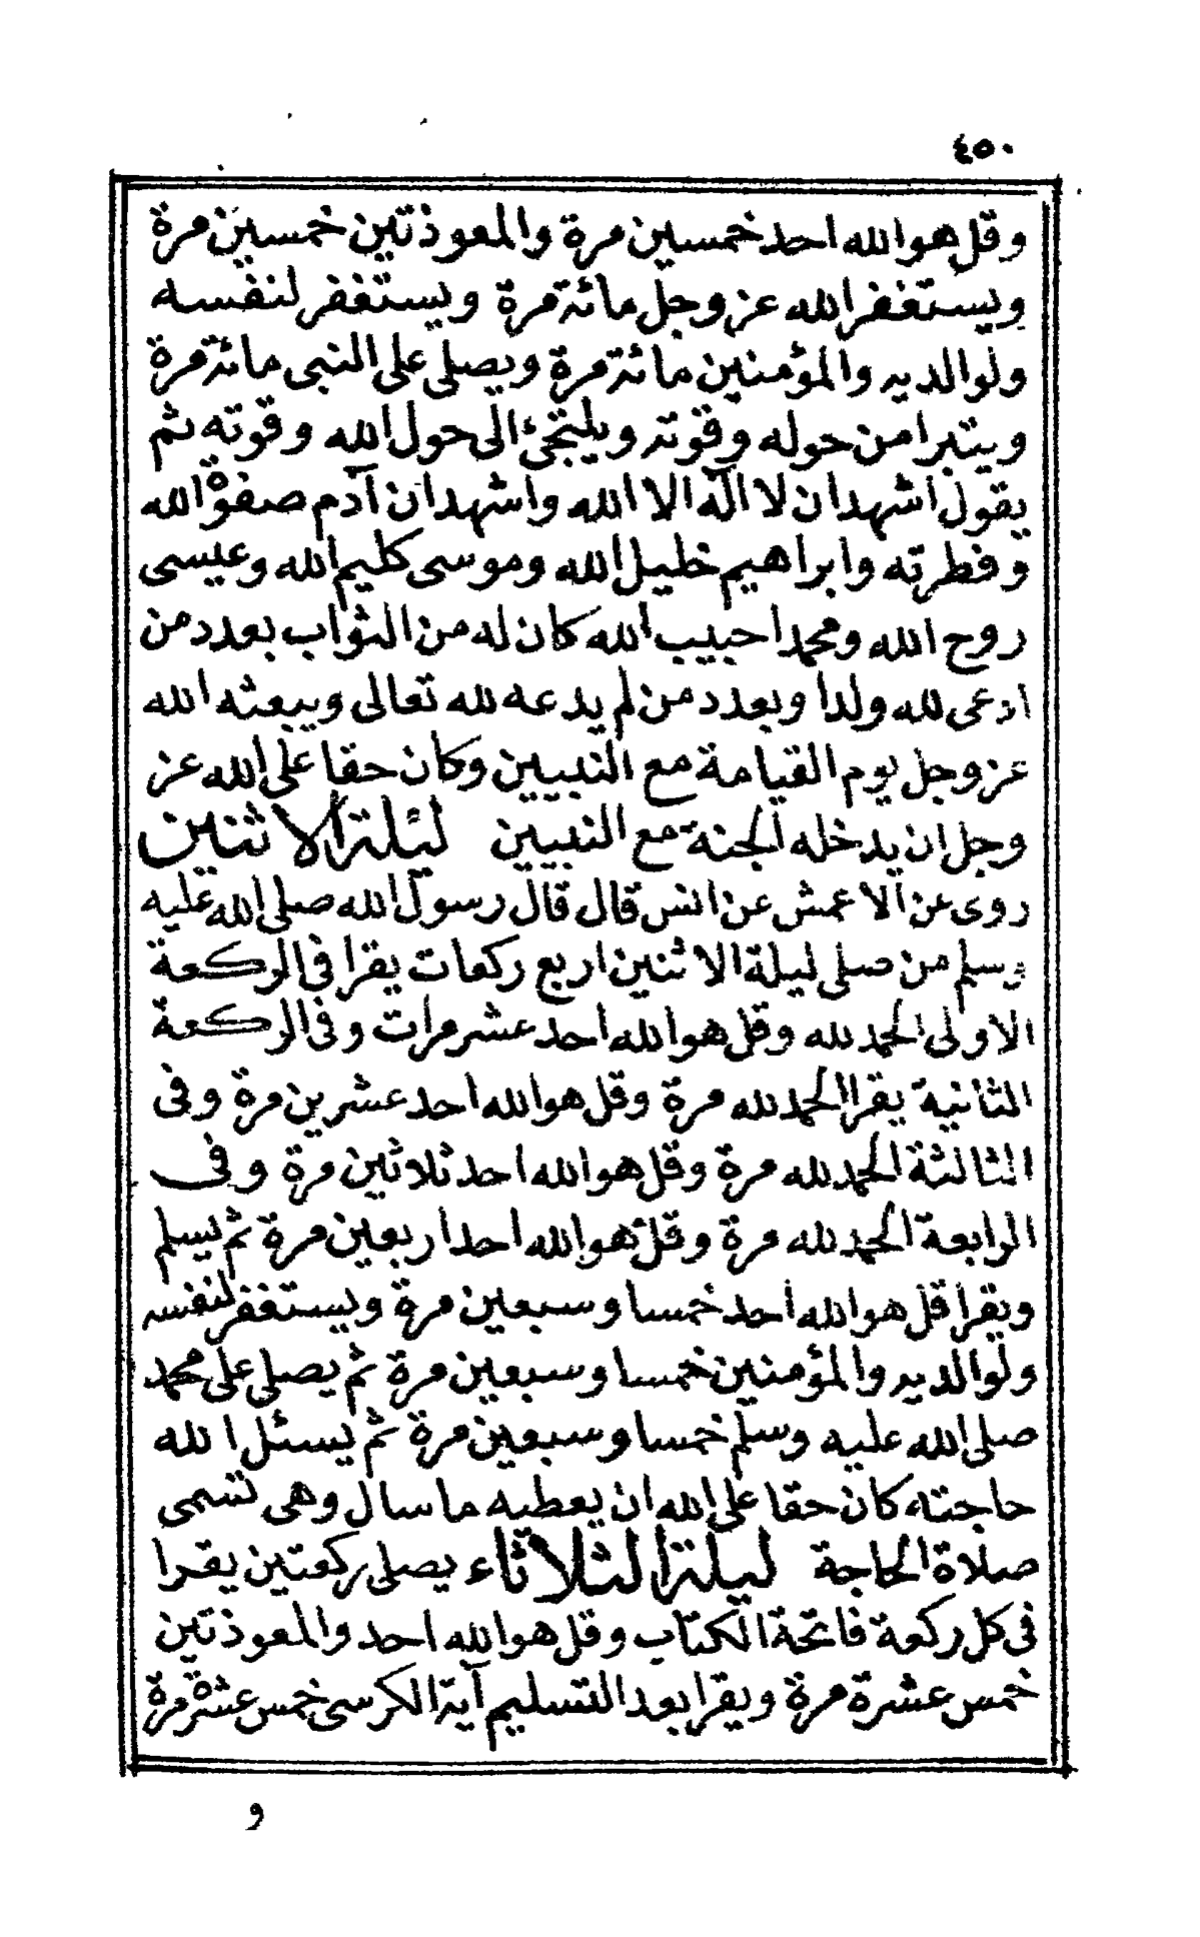 ٤٥٠
وقل هو الله احد خمسين مرة والمعوذتين خمسين مرة
ويستغفر الله عز وجل مائة مرة ويستغفر لنفسه
ولوالديه والمؤمنين مائة مرة ويصلى على النبى مائة مرة
ويتبرا من حوله وقوته ويلتجئ الى حول الله وقوته ثم
يقول اشهد ان لا اله الا الله واشهد ان آدم صفوة الله
وفطرته وابراهيم خليل الله وموسى كليم الله وعيسى
روح الله ومحمدا حبيب الله كان له من الثواب بعدد من
ادعى لله ولدا وبعدد من لم يدعه لله تعالى ويبعثه الله
عز وجل يوم القيامة مع النبيين وكان حقا على الله عز
وجل ان يدخله الجنة مع النبيين ليلة الاثنين
روى عن الاعمش عن انس قال قال رسول الله صلى الله عليه
وسلم من صلى ليلة الاثنين اربع ركعات يقرا فى الركعة
الاولى الحمد لله وقل هو الله احد عشر مرات وفى الركعة
الثانية يقرا الحمد لله مرة وقل هو الله احد عشرين مرة وفى
الثالثة الحمد لله مرة وقل هو الله احد ثلاثين مرة وفى
الرابعة الحمد لله مرة وقل هو الله احد اربعين مرة ثم يسلم
ويقرا قل هو الله احد خمسا وسبعين مرة ويستغفر لنفسه
ولوالديه والمؤمنين خمسا وسبعين مرة ثم يصلى على محمد
صلى الله عليه وسلم خمسا وسبعين مرة ثم يسئل الله
حاجته كان حقا على الله ان يعطيه ما سال وهى تسمى
صلاة الحاجة ليلة الثلاثاء يصلى ركعتين يقرا
فى كل ركعة فاتحة الكتاب وقل هو الله احد والمعوذتين
خمس عشرة مرة ويقرا بعد التسليم آية الكرسى خمس عشرة مرة
و